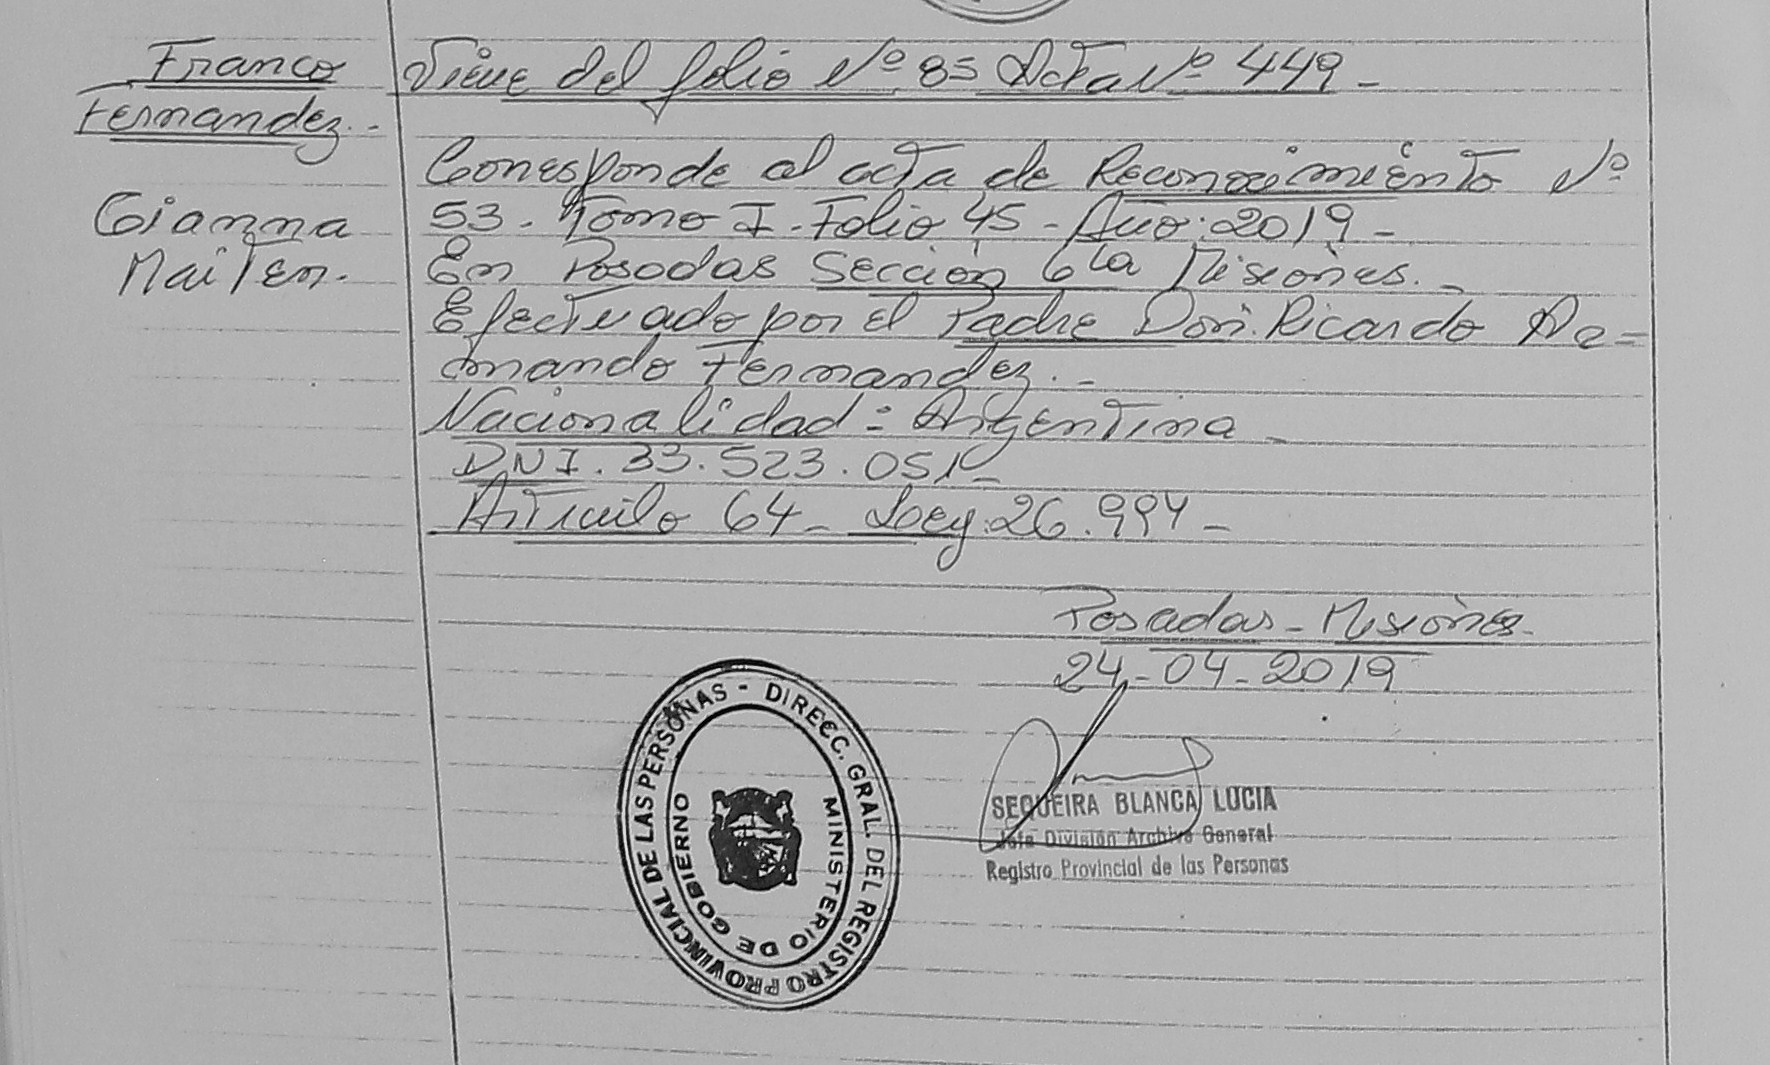 Franco
Fernandez.-
Gianna
Mailen.
Viene del folio Nº 85 Acta Nº 449-
Corresponde al acta de Reconocimiento Nº
53. Tomo I. Folio 45 - Año: 2019-
En Posadas Sección 6ta Misiones.-
Efectuado por el Padre Don: Ricardo Ar=
mando Fernandez.-
Nacionalidad = Argentina-
DNI. 33.523.051-
Artículo 64- Ley: 26.994-
Posadas - Misiones-
24-04-2019
DIRECC. GRAL. DEL REGISTRO PROVINCIAL DE LAS PERSONAS -
MINISTERIO DE GOBIERNO
SEQUEIRA BLANCA LUCIA
Jefe División Archivo General
Registro Provincial de las Personas